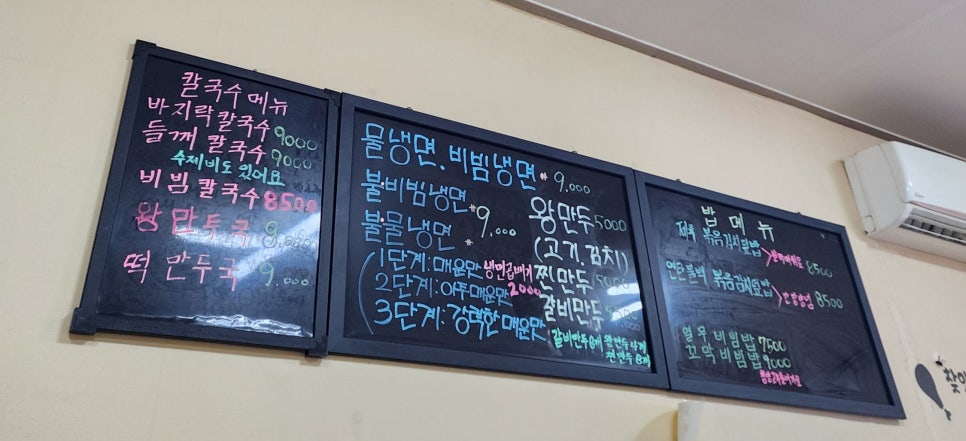 칼국수 메뉴
바지락칼국수 9000
들깨 칼국수 9000
수제비도 있어요
비빔 칼국수 8500
왕만두국
떡만두국 9.000
물냉면.비빔냉면 9.000
불.비빔냉면
불물냉면 9.000
1단계: 매운맛
2단계: 아주매운맛
3단계: 강력한 매운맛
냉면곱빼기
2000
왕만두 5000
(고기.김치)
찐만두
갈비만두
갈비만두 6개 왕만두 4개
찐만두 8개
밥 메뉴
제육 볶음김치덮밥 8500
연탄불백 볶음김치덮밥 8500
열무 비빔밥 7500
꼬막 비빔밥 9000
찾아